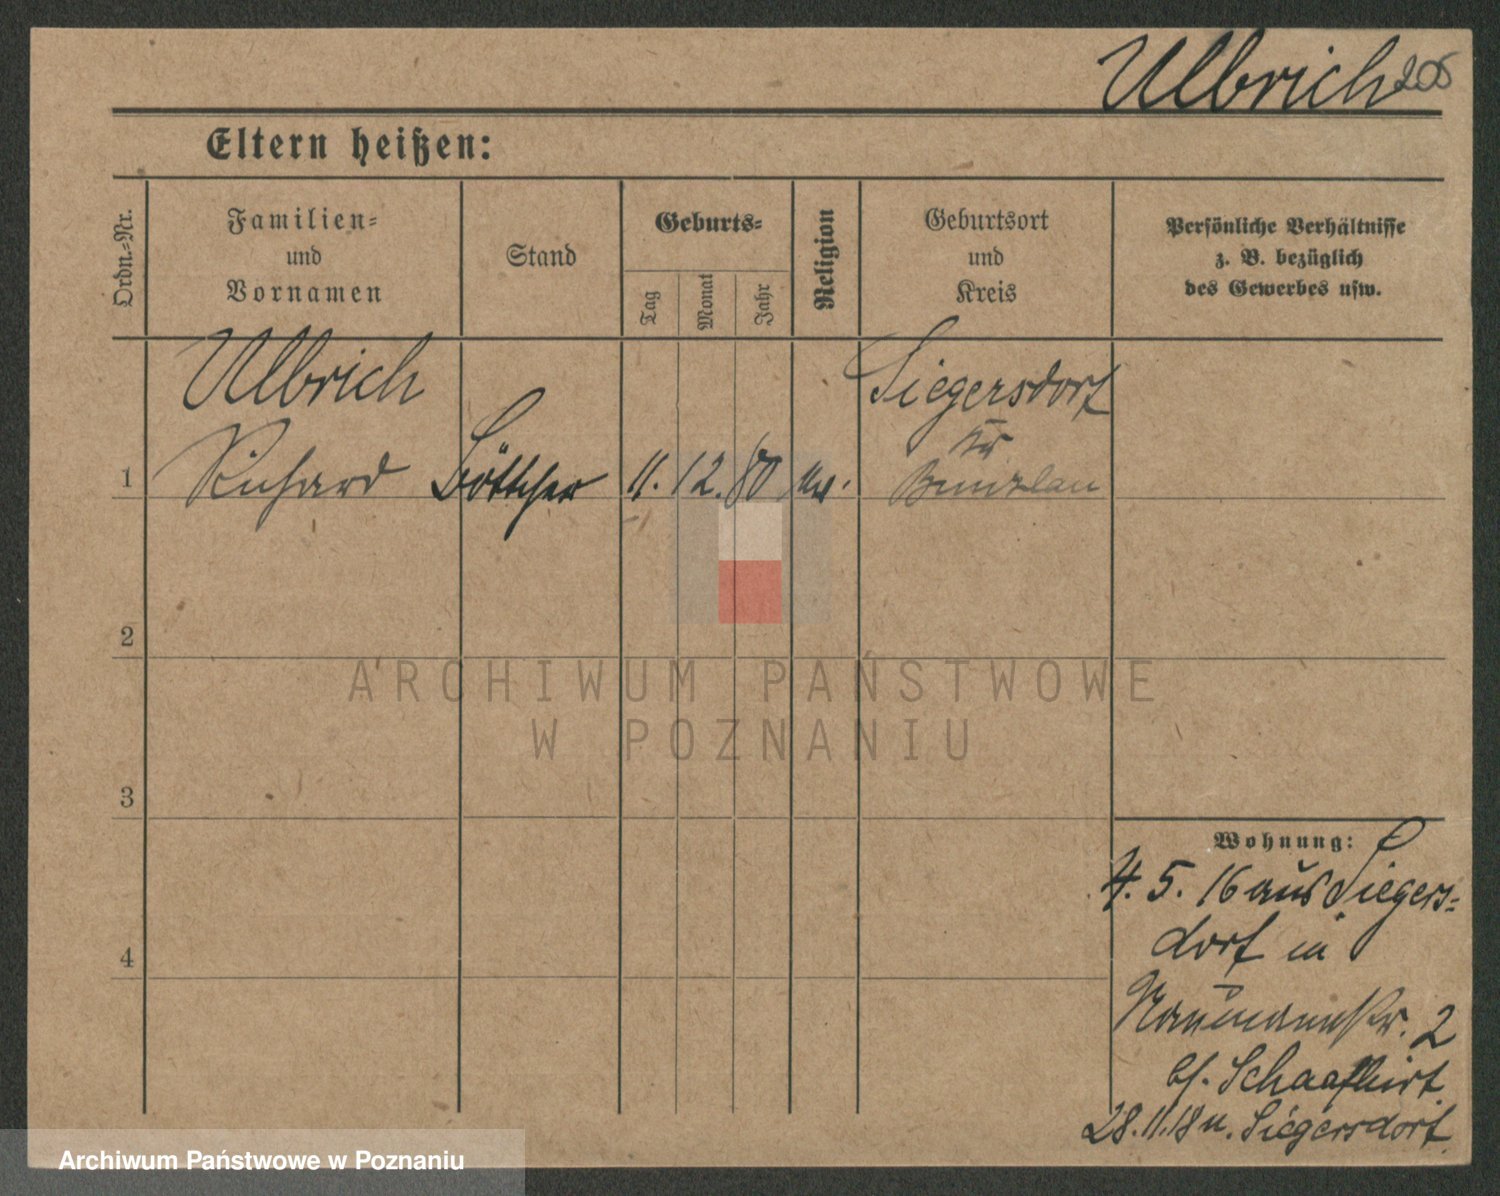 Ulbrich 205
Eltern heißen:
Ordn.=Nr.
Familien=
und
Vornamen
Stand
Geburts=
Tag
Monat
Jahr
Religion
Geburtsort
und
Kreis
Persönliche Verhältnisse
z. B. bezüglich
des Gewerbes usw.
Ulbrich
Siegersdorf
Kr
1 Richard Böttcher 11. 12. 80
Bunzlau
2
ARCHIWUM PAŃSTWOWE
W POZNANIU
3
Wohnung:
4. 5. 16 aus Siegers=
dorf in
4
Naumannstr. 2
bf. Schaafhirt
28.11.18 n. Siegersdorf
Archiwum Państwowe w Poznaniu